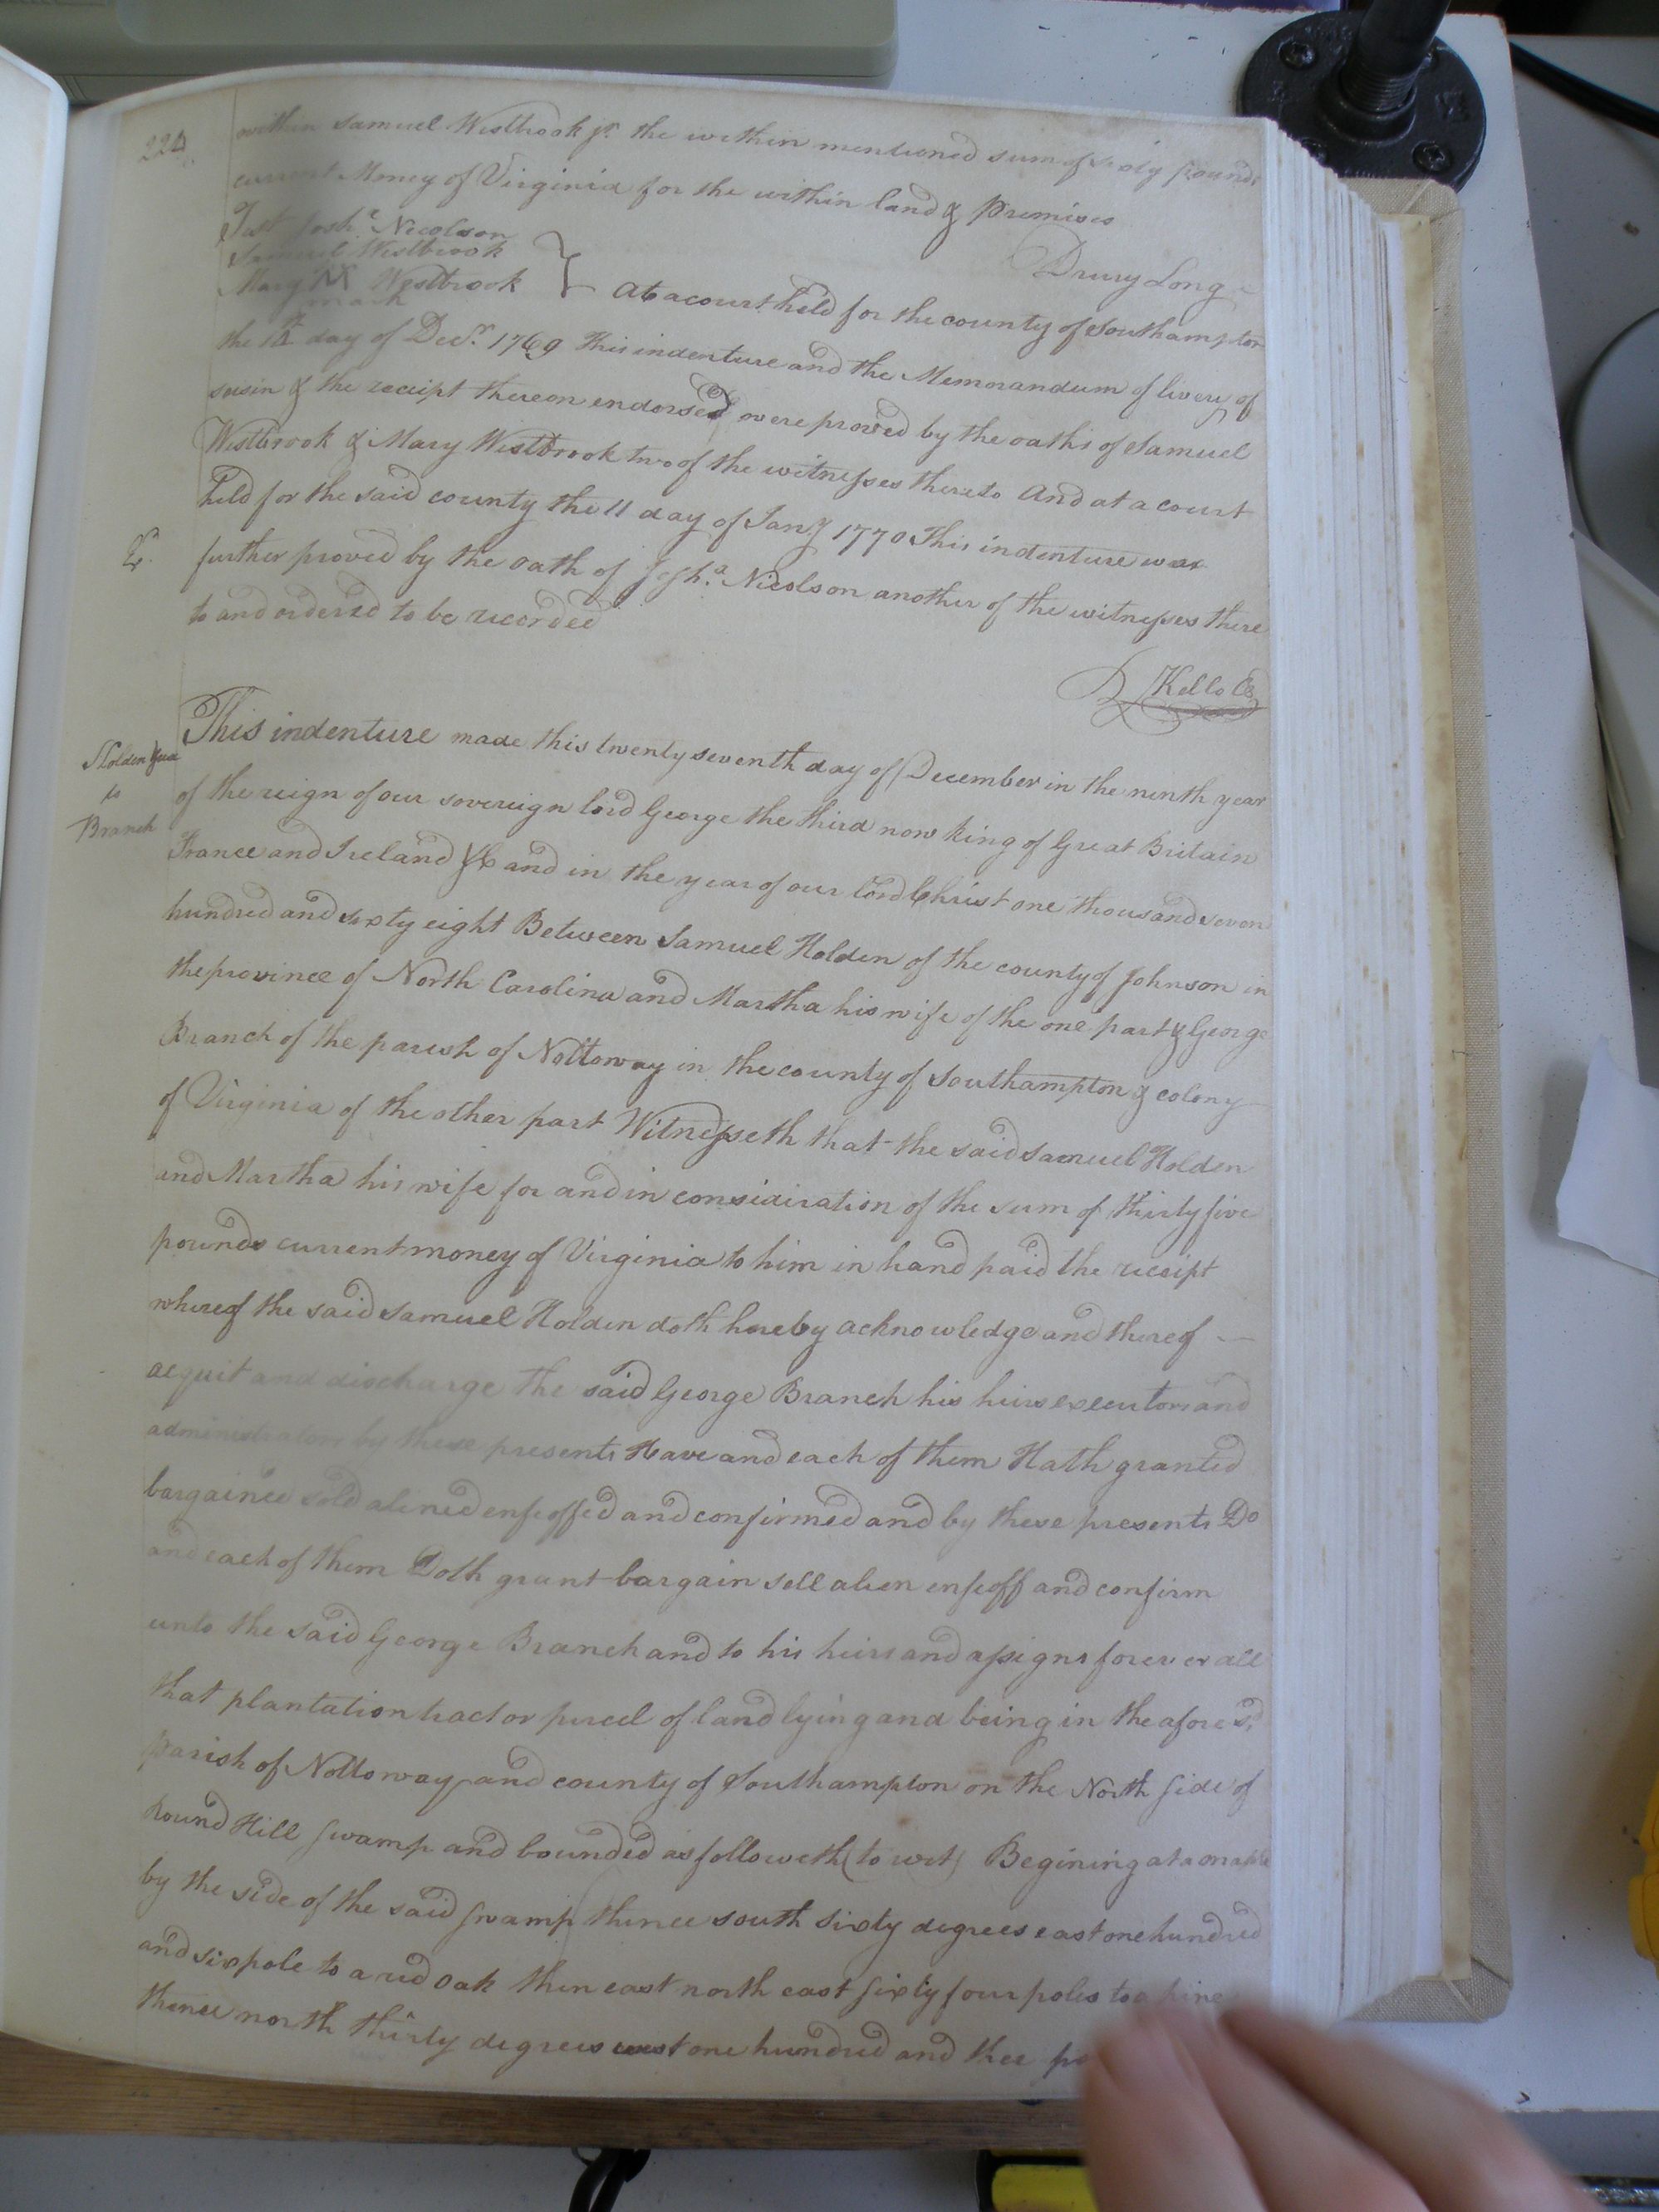 224
within Samuel Westbrook jr. the within mentioned sum of sixty pounds
current Money of Virginia for the within land & premises
Test Josha. Nicolson
Drury Long
Samuel Westbrook
Mary M Westbrook
mark
At a court held for the county of Southampton
the day of Decr. 1769 This indenture and the Memorandum of livery of
seisin & the receipt thereon endorsed were proved by the oaths of Samuel
Westbrook & Mary Westbrook two of the witnesses thereto And at a court
held for the said county the 11 day of Jany 1770 This indenture was
further proved by the oath of Josha. Nicolson another of the witnesses there
to and ordered to be recorded
Kello
Holden
to
Branch
This indenture made this twenty seventh day of December in the ninth year
of the reign of our sovereign lord George the third now king of Great Britain
France and Ireland &c and in the year of our lord Christ one thousand seven
hundred and sixty eight Between Samuel Holden of the county of Johnson in
the province of North Carolina and Martha his wife of the one part & George
Branch of the parish of Nottoway in the county of Southampton & colony
of Virginia of the other part Witnesseth that the said Samuel Holden
and Martha his wife for and in considiration of the sum of thirty five
pounds current money of Virginia to him in hand paid the receipt
whereof the said Samuel Holden doth hereby acknowledge and thereof
acquit and discharge the said George Branch his heirs executors and
administrators by these presents Have and each of them Hath granted
bargained sold aliened enfeoffed and confirmed and by these presents Do
and each of them Doth grant bargain sell alien enfeoff and confirm
unto the said George Branch and to his heirs and assigns forever all
that plantation tract or percel of land lying and being in the afores'd
parish of Nottoway and county of Southampton on the North side of
Round Hill swamp and bounded as followeth (to wit) Begining at a
by the side of the said swamp thence south sixty degrees east one hundred
and six pole to a red oak then east north east sixty four poles to a pine
thence north thirty degrees west one hundred and thee